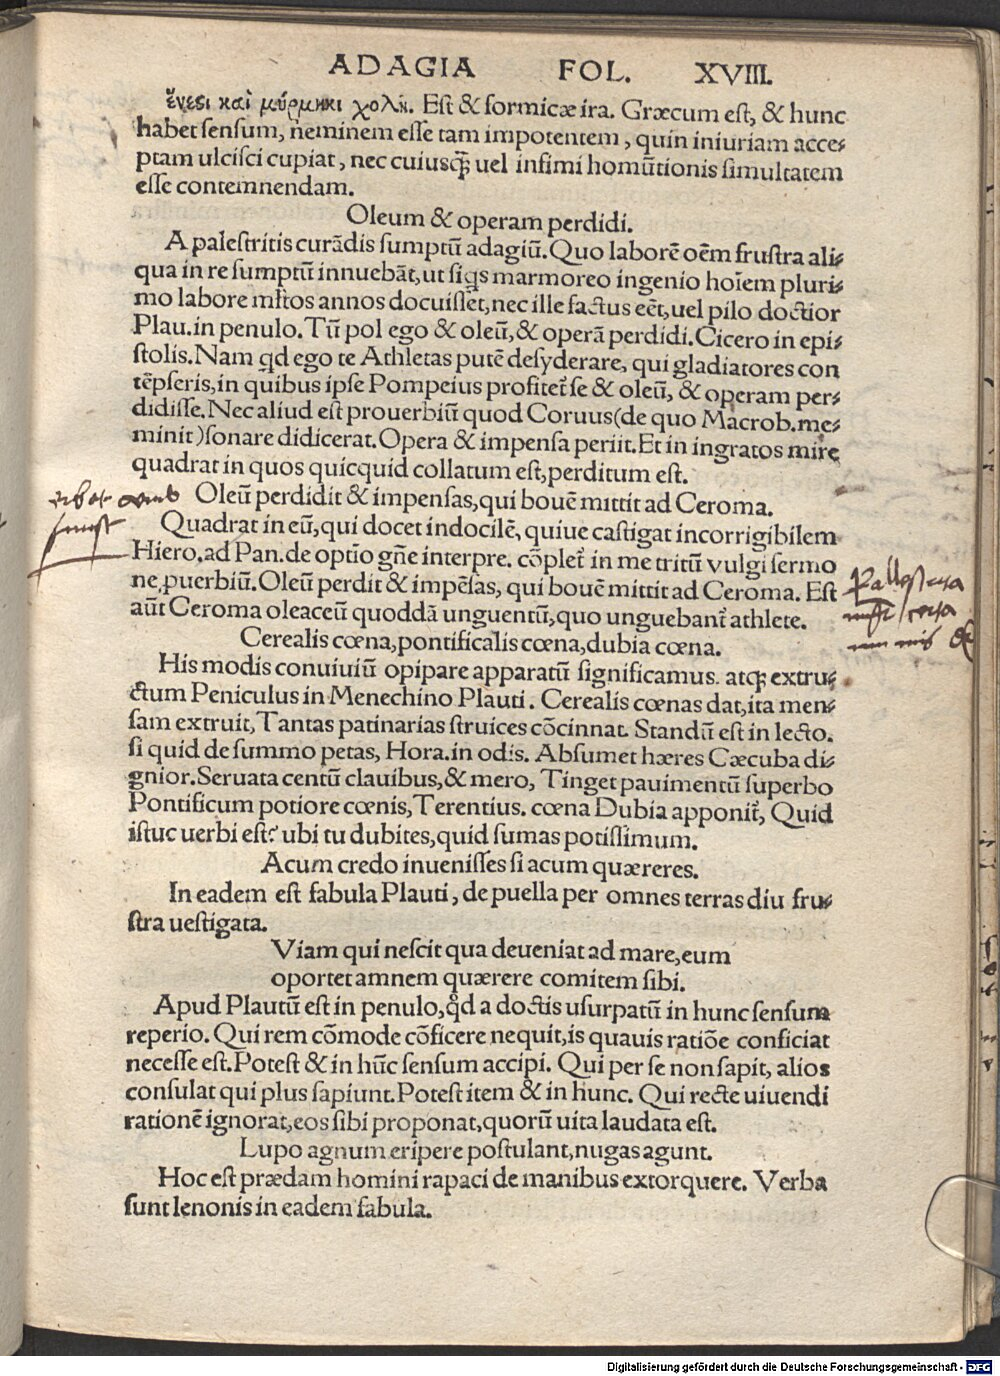 ADAGIA FOL. XVIII.
ἔνεςι καὶ μύρμηκι χολή. Est & formicæ ira. Græcum est, & hunc
habet sensum, neminem esse tam impotentem, quin iniuriam acce-
ptam ulcisci cupiat, nec cuiusq̃ uel infimi homũtionis simultatem
esse contemnendam.
Oleum & operam perdidi.
A palestritis curãdis sumptũ adagiũ. Quo laborẽ oẽm frustra ali-
qua in re sumptũ innuebãt, ut siq̃s marmoreo ingenio hoĩem pluri-
mo labore ml̃tos annos docuisset, nec ille factus eẽt, uel pilo doctior
Plau. in penulo. Tũ pol ego & oleũ, & operã perdidi. Cicero in epi-
stolis. Nam qd ego te Athletas putẽ desyderare, qui gladiatores con
tẽpseris, in quibus ipse Pompeius profitet̃ se & oleũ, & operam per-
didisse. Nec aliud est prouerbiũ quod Coruus (de quo Macrob. me-
minit) sonare didicerat. Opera & impensa periit. Et in ingratos mire
quadrat in quos quicquid collatum est, perditum est.
Oleũ perdidit & impensas, qui bouẽ mittit ad Ceroma.
Quadrat in eũ, qui docet indocilẽ, quiue castigat incorrigibilem
Hiero. ad Pan. de optĩo gñe interpre. cõplet̃ in me tritũ vulgi sermo
ne ꝓuerbiũ. Oleũ perdit & impẽsas, qui bouẽ mittit ad Ceroma. Est
aũt Ceroma oleaceũ quoddã unguentũ, quo unguebant̃ athlete.
Cerealis cœna, pontificalis cœna, dubia cœna.
His modis conuiuiũ opipare apparatũ significamus. atq̃ extru-
ctum Peniculus in Menechino Plauti. Cerealis cœnas dat, ita men-
sam extruit, Tantas patinarias struices cõcinnat. Standũ est in lecto.
si quid de summo petas, Hora. in odis. Absumet hæres Cæcuba di-
gnior. Seruata centũ clauibus, & mero, Tinget pauimentũ superbo
Pontificum potiore cœnis, Terentius. cœna Dubia apponit̃, Quid
istuc uerbi est? ubi tu dubites, quid sumas potissimum.
Acum credo inuenisses si acum quæreres.
In eadem est fabula Plauti, de puella per omnes terras diu fru-
stra uestigata.
Viam qui nescit qua deueniat ad mare, eum
oportet amnem quærere comitem sibi.
Apud Plautũ est in penulo, qd̃ a doctis usurpatũ in hunc sensum
reperio. Qui rem cõmode cõficere nequit, is quauis ratiõe conficiat
necesse est. Potest & in hũc sensum accipi. Qui per se non sapit, alios
consulat qui plus sapiunt. Potest item & in hunc. Qui recte uiuendi
rationẽ ignorat, eos sibi proponat, quorũ uita laudata est.
Lupo agnum eripere postulant, nugas agunt.
Hoc est prædam homini rapaci de manibus extorquere. Verba
sunt lenonis in eadem fabula.
Digitalisierung gefördert durch die Deutsche Forschungsgemeinschaft - DFG